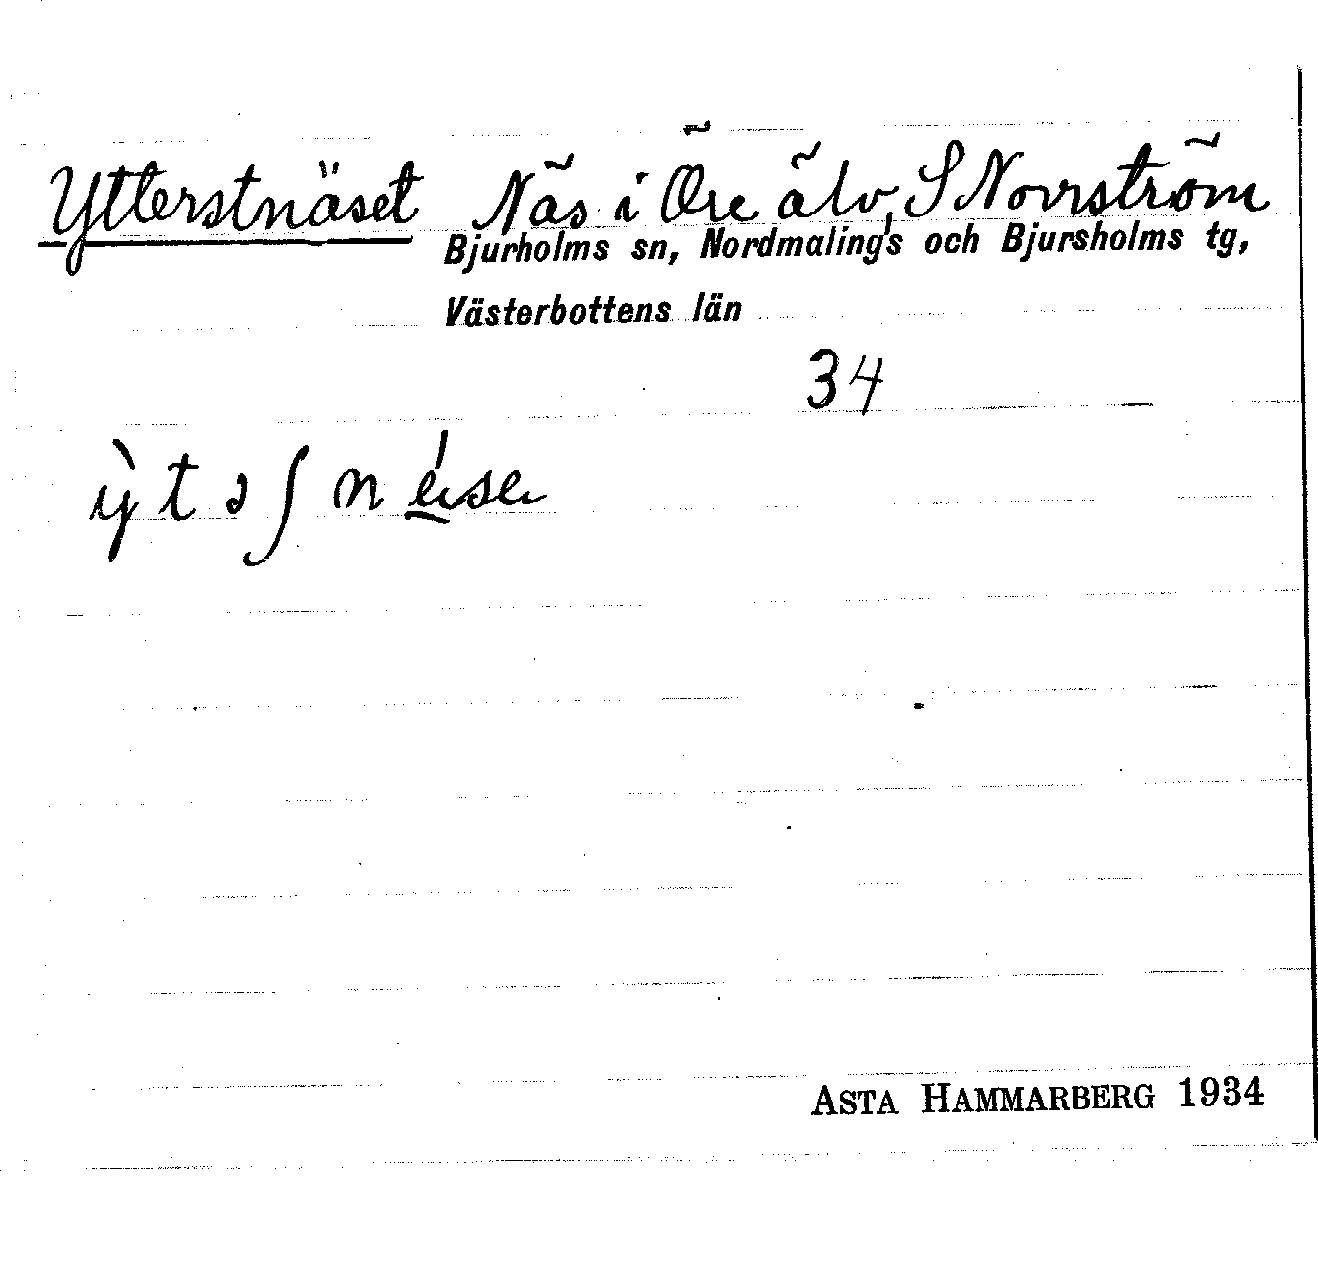 Ytterstnäset Näs i Öre älv, S Norrström
Bjurholms sn, Nordmalings och Bjursholms tg,
Västerbottens län
34
ỳtəʃ
Asta Hammarberg 1934